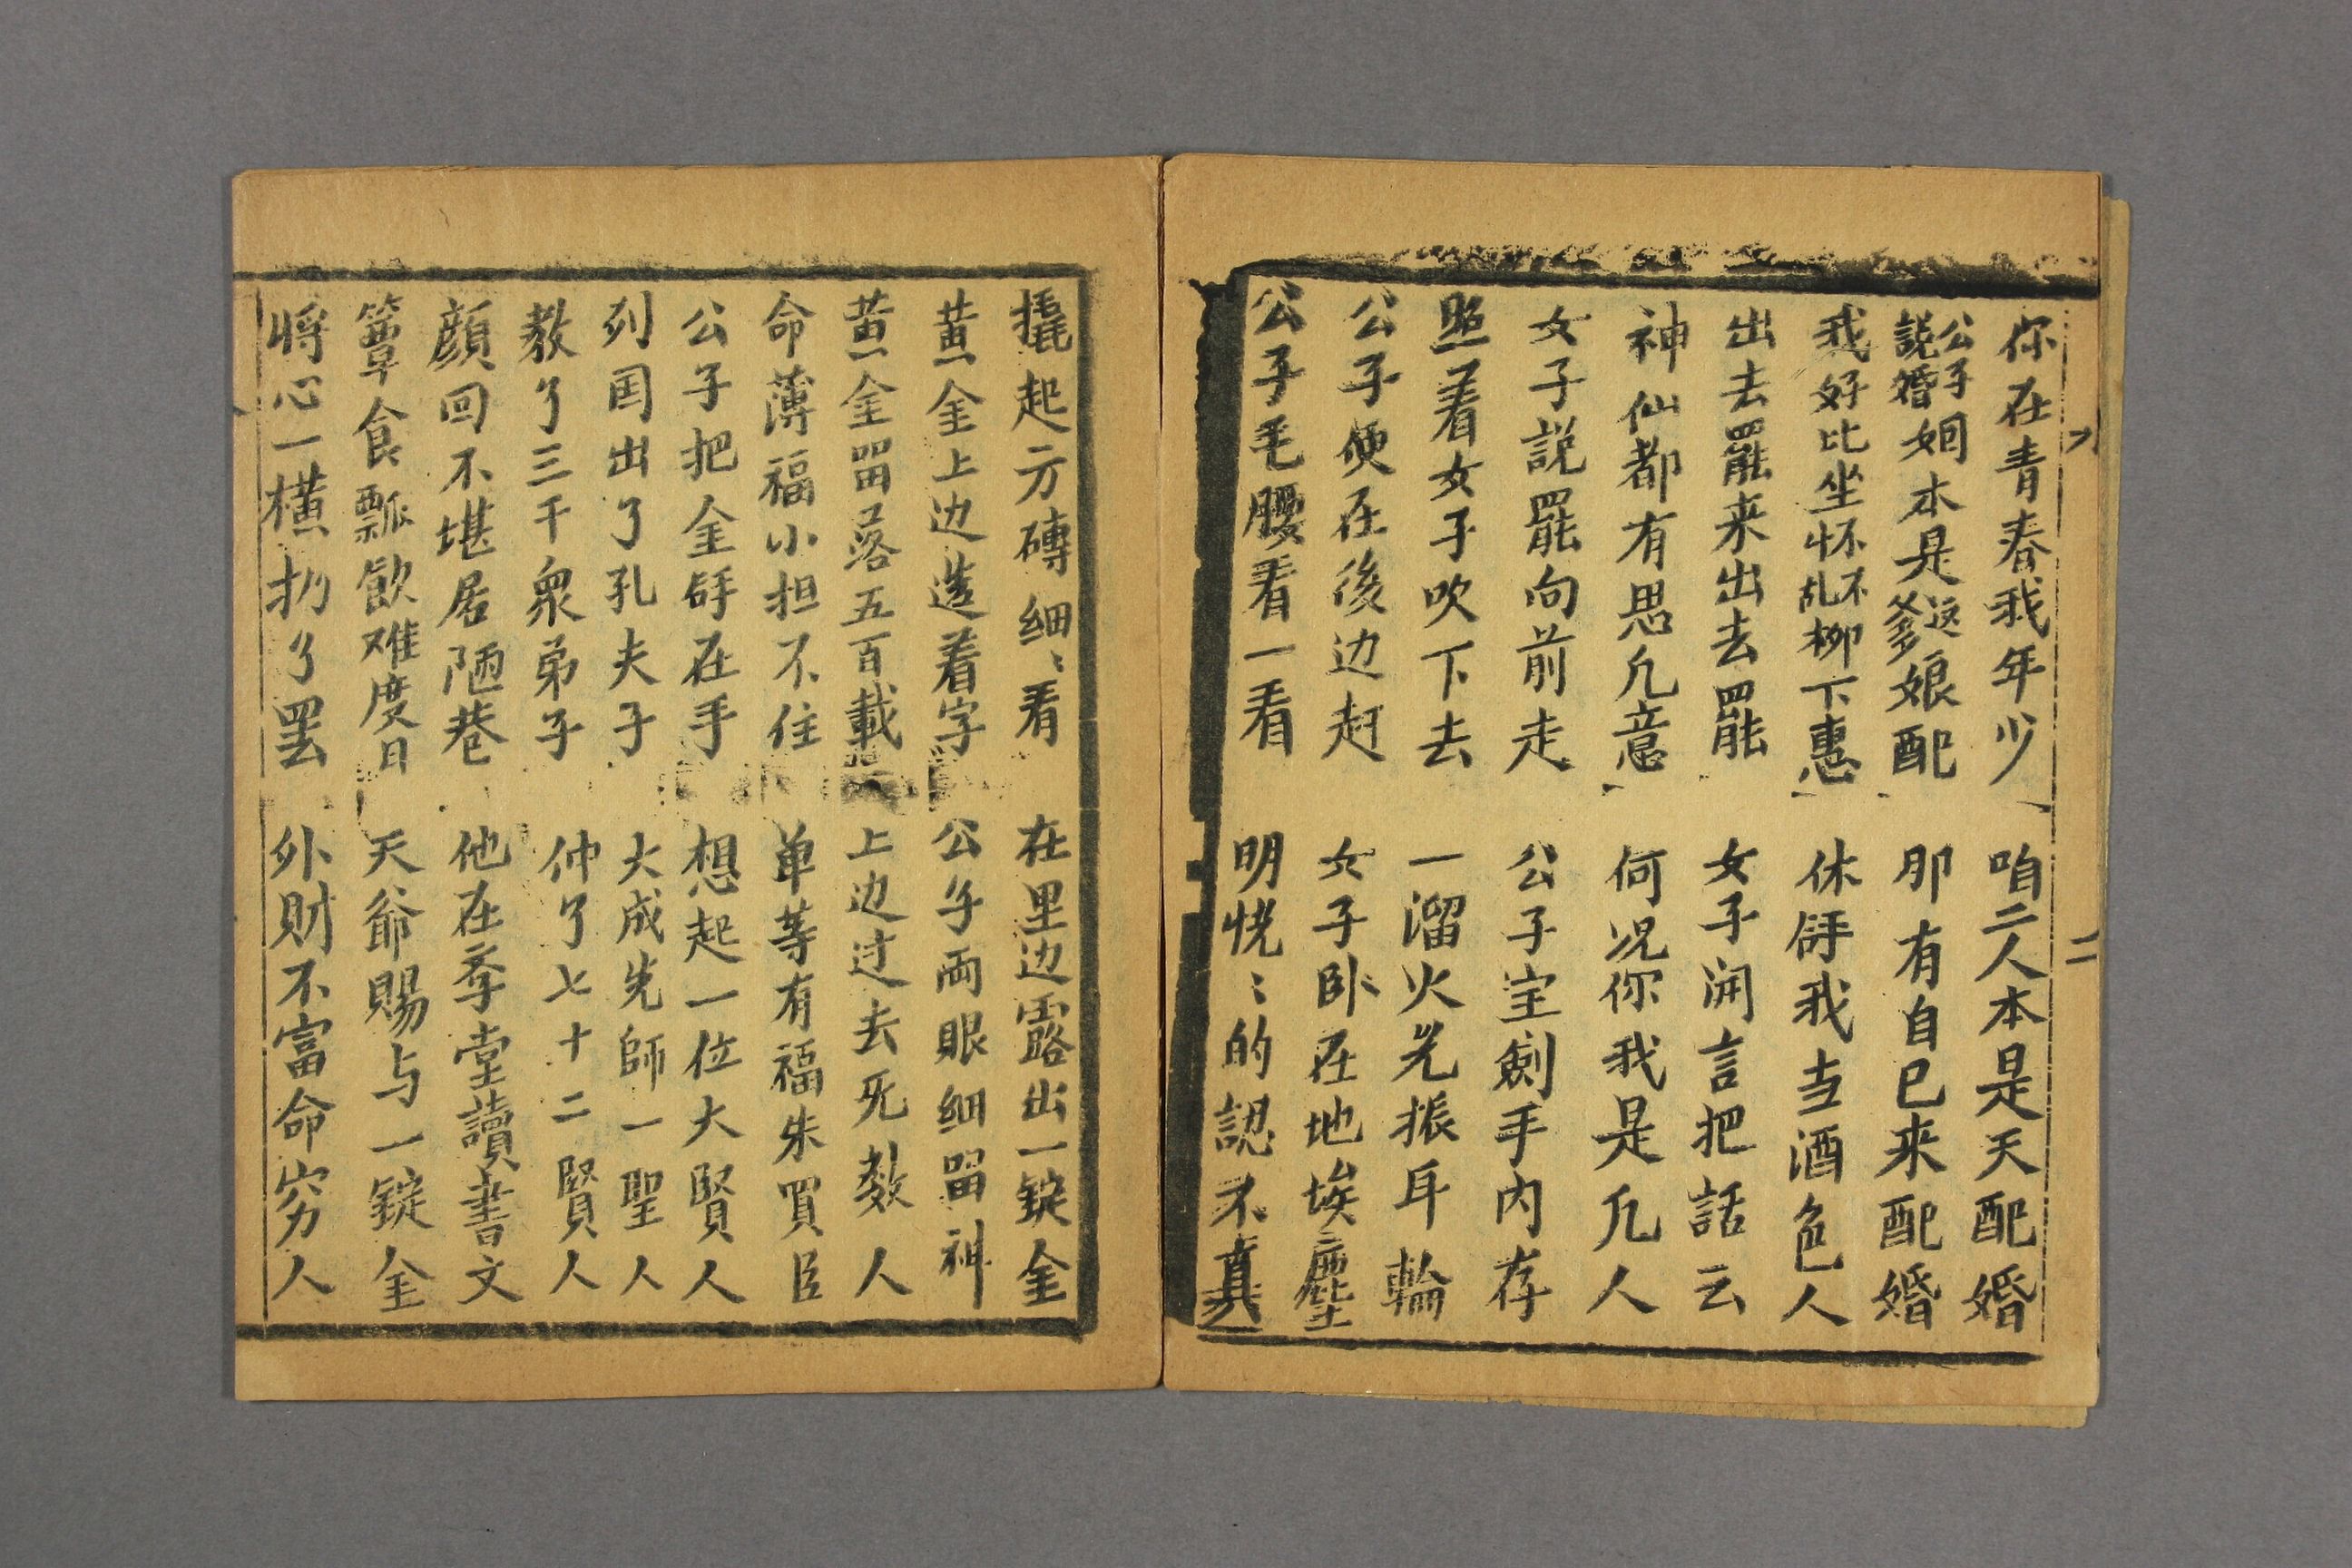 你在青春我年少 咱二人本是天配婚
公子説婚姻本是这爹娘配 那有自已来配婚
我好比坐怀不乱柳下惠 休拜我当酒色人
出去罷来出去罷 女子開言把話云
神仙都有思凢意 何况你我是凢人
女子説罷向前走 公子宝劍手内存
照着女子吹下去 一溜火光振耳輪
公子便在後边赶 女子卧在地埃塵
公子毛腰看一看 明恍〻的認不真
二
撬起方磚細〻看 在里边露出一錠金
黄金上边造着字 公子両眼細留神
黄金留落五百載 上边过去死数人
命薄福小担不住 单等有福朱買臣
公子把金拜在手 想起一位大賢人
列国出了孔夫子 大成先師一聖人
教了三千衆弟子 仲了七十二賢人
顔回不堪居陋巷 他在孝堂讀書文
簞食瓢飲难度日 天爺賜与一錠金
将心一横扔了罢 外財不富命穷人